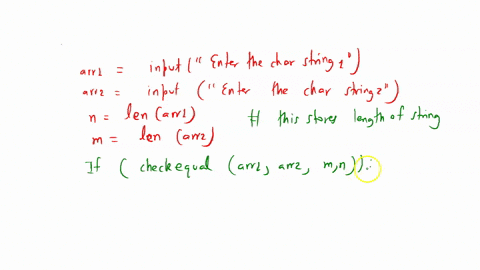 arr1 = input("Enter the char string 1")
arr2 = input ("Enter the char string2")
n = len (arr1) # this stores length of string
m = len (arr2)
If ( checkequal (arr1, arr2, m,n)):